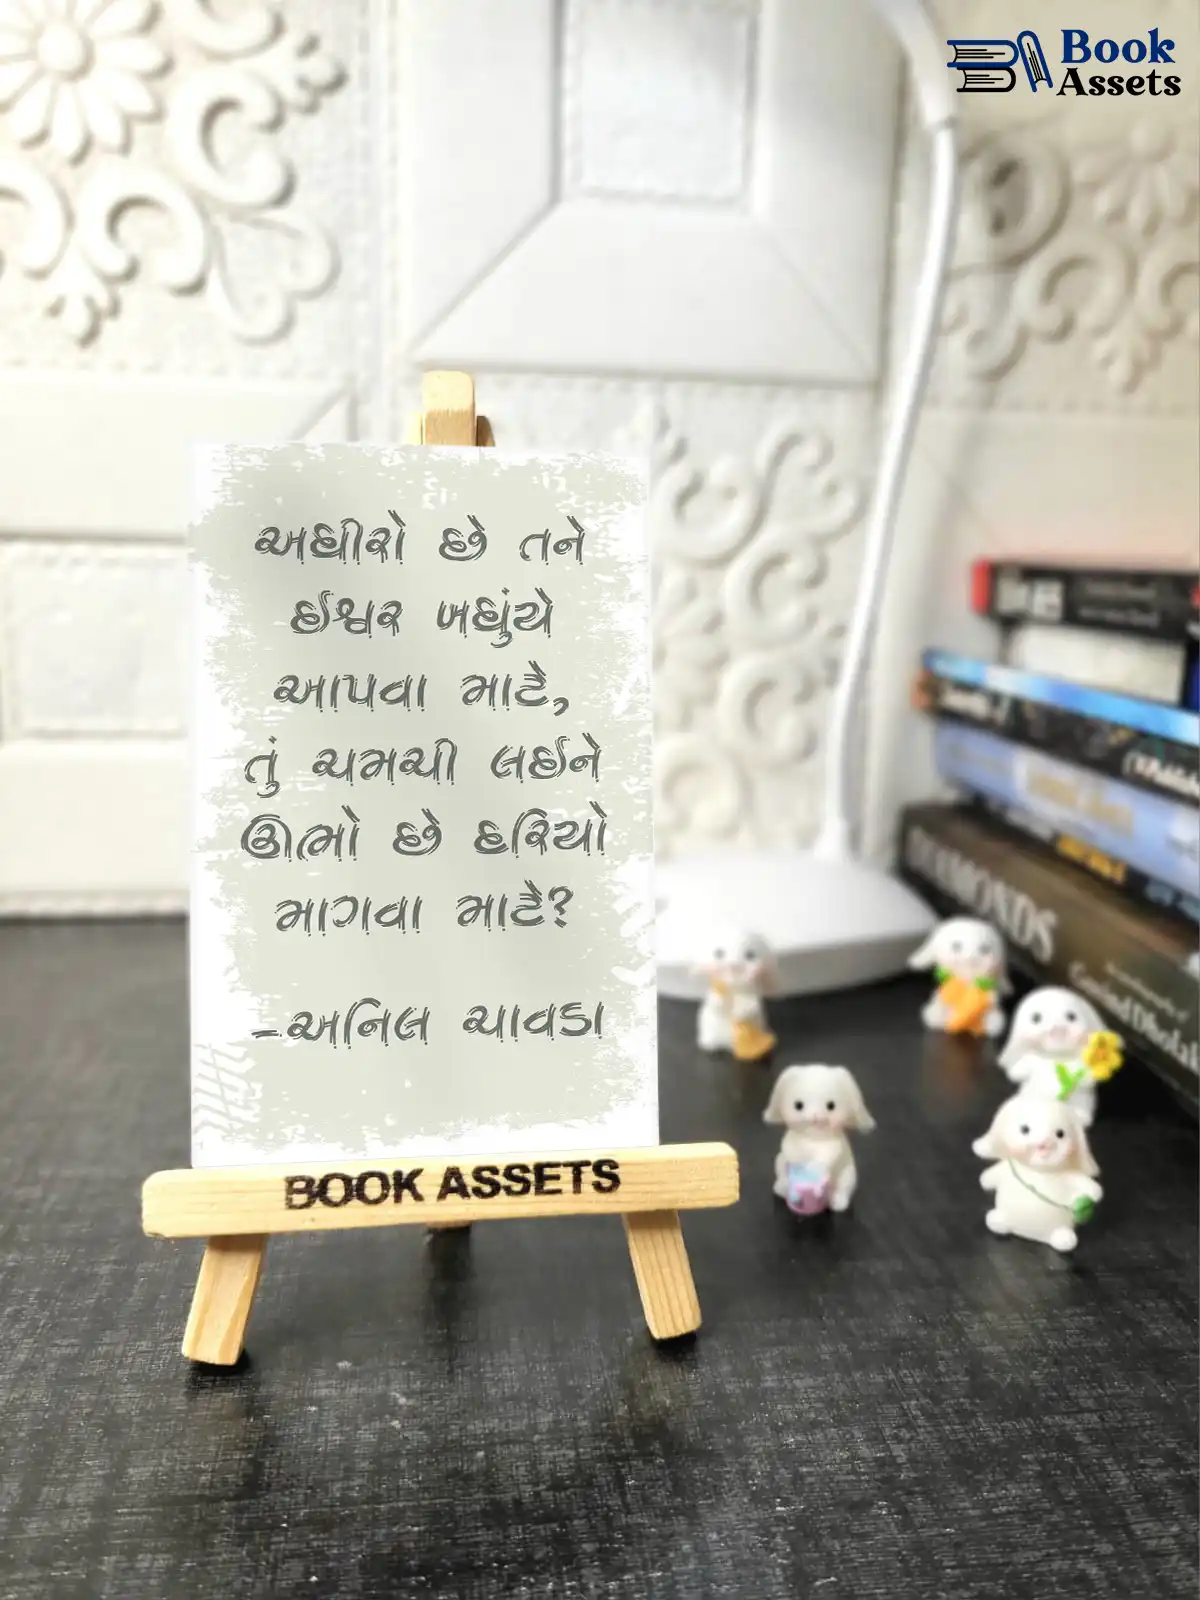 Book
Assets
અધીરો છે તને
ઈશ્વર બધુંયે
આપવા માટે,
તું ચમચી લઈને
ઊભો છે દરિયો
માગવા માટે?
-અનિલ ચાવડા
BOOK ASSETS
DIAMONDS